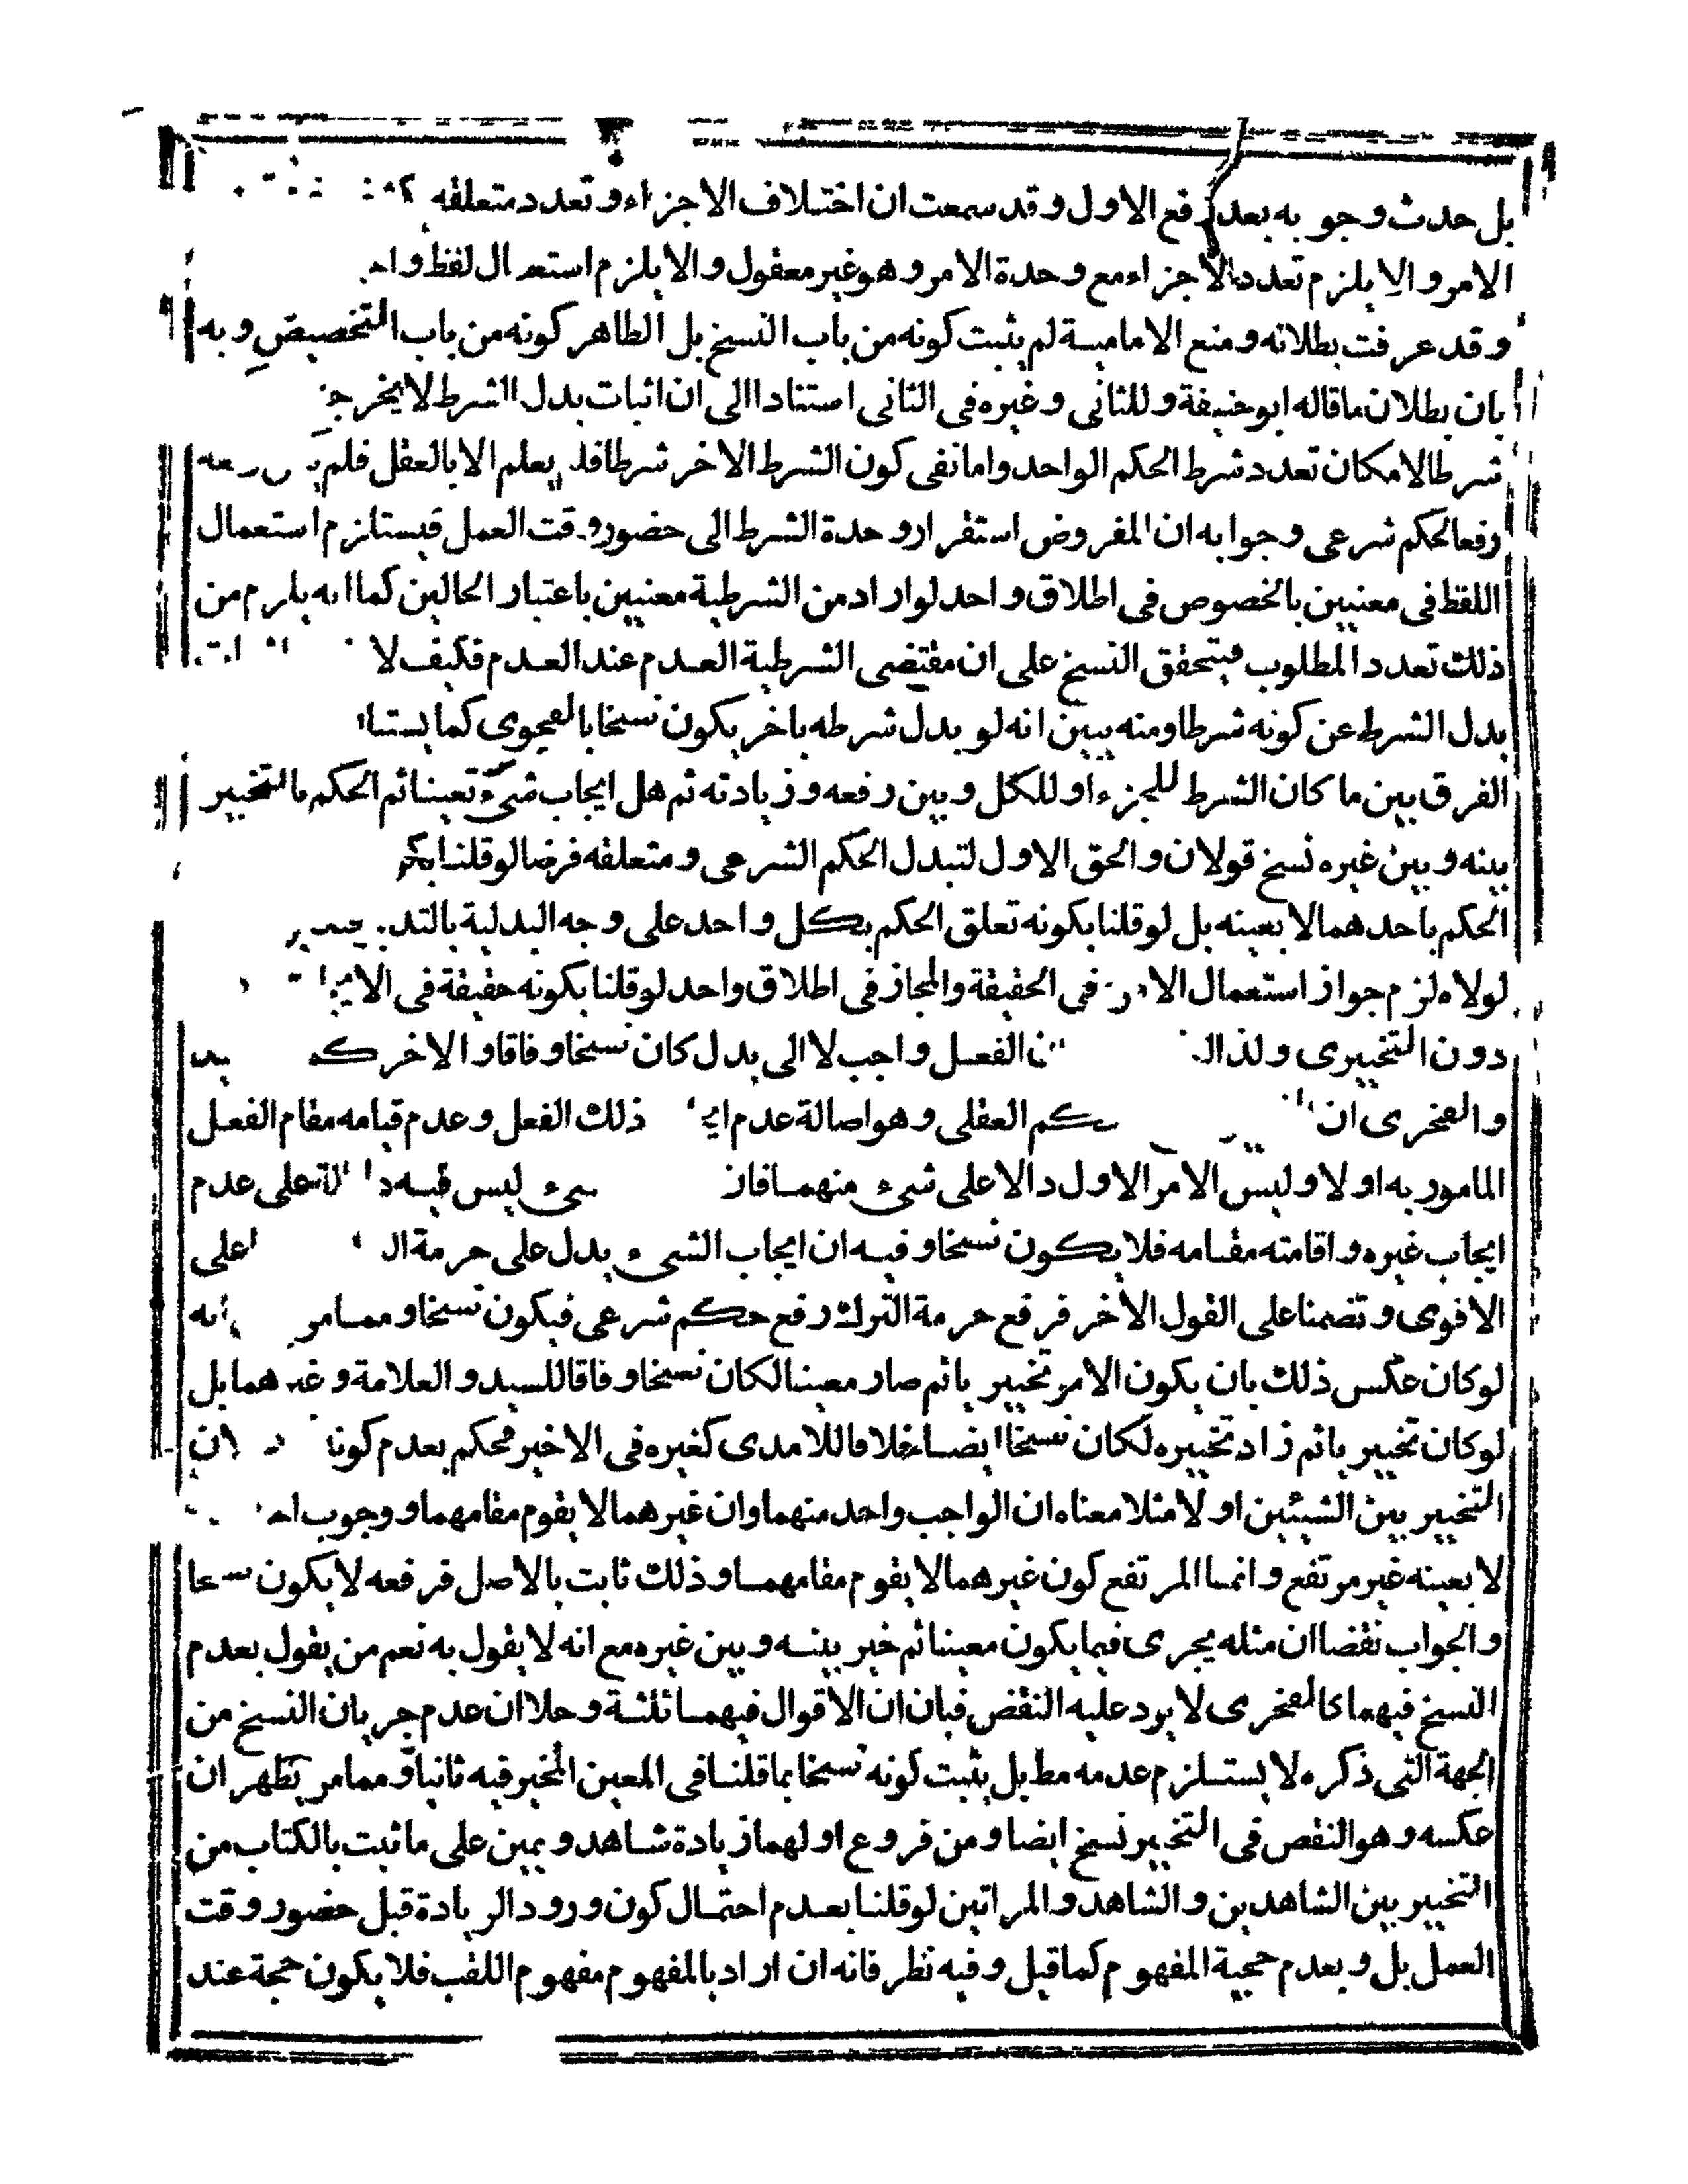 بل حدث وجوبه بعد رفع الاول وقد سمعت ان اختلاف الاجزاء وتعدد متعلقه
الامر والا يلزم تعدد الاجزاء مع وحدة الامر وهو غير معقول والا يلزم استعمال لفظ واحد
وقد عرفت بطلانه ومنع الامامية لم يثبت كونه من باب النسخ بل الظاهر كونه من باب التخصيص وبه
بان بطلان ما قاله ابو حنيفة وللثاني وغيره في الثاني استنادا الى ان اثبات بدل الشرط لا يخرج
شرطا لامكان تعدد شرط الحكم الواحد واما نفى كون الشرط الاخر شرطا فلا يعلم الا بالعقل فلم
رفعا لحكم شرعى وجوابه ان المفروض استقرار وحدة الشرط الى حضور وقت العمل فيستلزم استعمال
اللفظ فى معنيين بالخصوص فى اطلاق واحد لو اراد من الشرطية معنيين باعتبار الحالين كما انه يلزم من
ذلك تعدد المطلوب فيتحقق النسخ على ان مقتضى الشرطية العدم عند العدم فكيف لا
بدل الشرط عن كونه شرطا ومنه يبين انه لو بدل شرطه باخر يكون نسخا بالفحوى كما
الفرق بين ما كان الشرط للجزء او للكل وبين رفعه وزيادته ثم هل ايجاب شىء تعيينا ثم الحكم بالتخيير
بينه وبين غيره نسخ قولان والحق الاول لتبدل الحكم الشرعى ومتعلقه فرضا لو قلنا
الحكم باحدهما لا بعينه بل لو قلنا بكونه تعلق الحكم بكل واحد على وجه البدلية
لولاه لزم جواز استعمال الامر فى الحقيقة والمجاز فى اطلاق واحد لو قلنا بكونه حقيقة فى
دون التخييرى ولذا الفعل واجب لا الى بدل كان نسخا وفاقا والاخر
والفخرى ان العقلى وهو اصالة عدم ذلك الفعل وعدم قيامه مقام الفعل
المامور به اولا وليس الامر الاول دالا على شىء منهما فان شىء ليس فيه دلالة على عدم
ايجاب غيره واقامته مقامه فلا يكون نسخا وفيه ان ايجاب الشىء يدل على حرمة على
الاقوى وتضمنا على القول الاخر فرفع حرمة الترك رفع حكم شرعى فيكون نسخا ومما مر انه
لو كان عكس ذلك بان يكون الامر تخييريا ثم صار معينا لكان نسخا وفاقا للسيد والعلامة وغيرهما بل
لو كان تخييريا ثم زاد تخييره لكان نسخا ايضا خلافا للامدى كغيره فى الاخير فحكم بعدم ان
التخيير بين الشيئين اولا مثلا معناه ان الواجب واحد منهما وان غيرهما لا يقوم مقامهما ووجوب
لا بعينه غير مرتفع وانما المرتفع كون غيرهما لا يقوم مقامهما وذلك ثابت بالاصل فرفعه لا يكون نسخا
والجواب نقضا ان مثله يجرى فيما يكون معينا ثم خير بينه وبين غيره مع انه لا يقول به نعم من يقول بعدم
النسخ فيهما كالفخرى لا يرد عليه النقض فبان ان الاقوال فيهما ثلثة وحلا ان عدم جريان النسخ من
الجهة التى ذكره لا يستلزم عدمه مط بل يثبت كونه نسخا بما قلنا فى المعين المخير فيه ثانيا ومما مر يظهر ان
عكسه وهو النقص فى التخيير نسخ ايضا ومن فروع اولهما زيادة شاهد ويمين على ما ثبت بالكتاب من
التخيير بين الشاهدين والشاهد والمراتين لو قلنا بعدم احتمال كون ورود الزيادة قبل حضور وقت
العمل بل وبعدم حجية المفهوم كما قيل وفيه نظر فانه ان اراد بالمفهوم مفهوم اللقب فلا يكون حجة عند